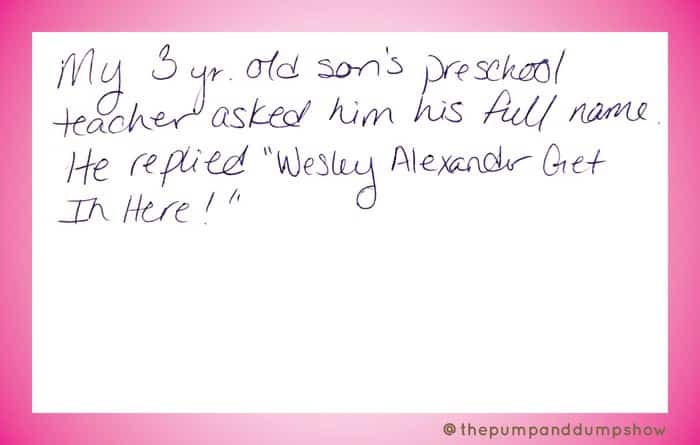 My 3 yr. old son's preschool
teacher asked him his full name.
He replied "Wesley Alexander Get
In Here!"
@thepumpanddumpshow